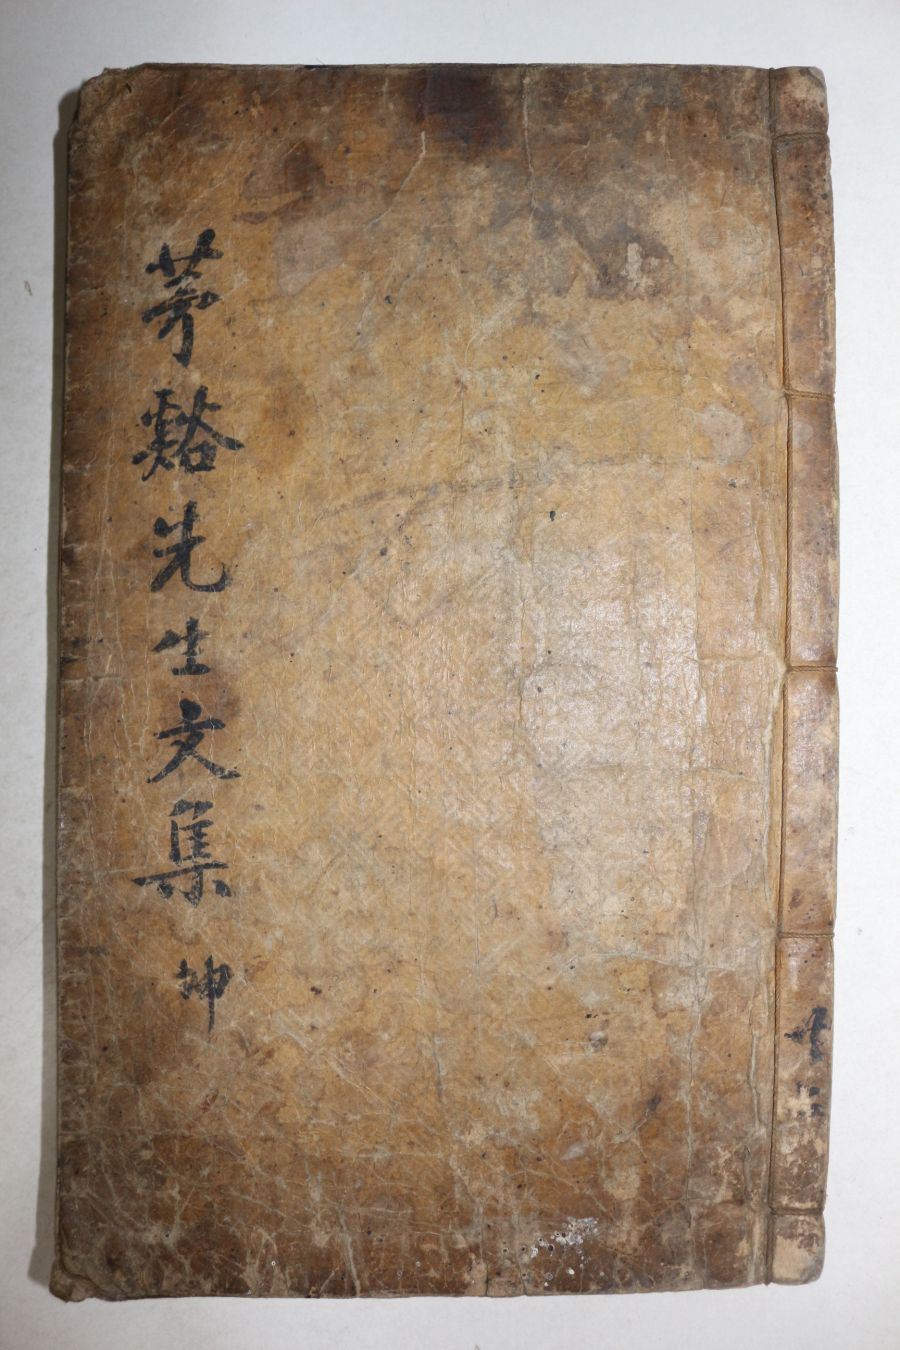 茅谿先生文集 坤